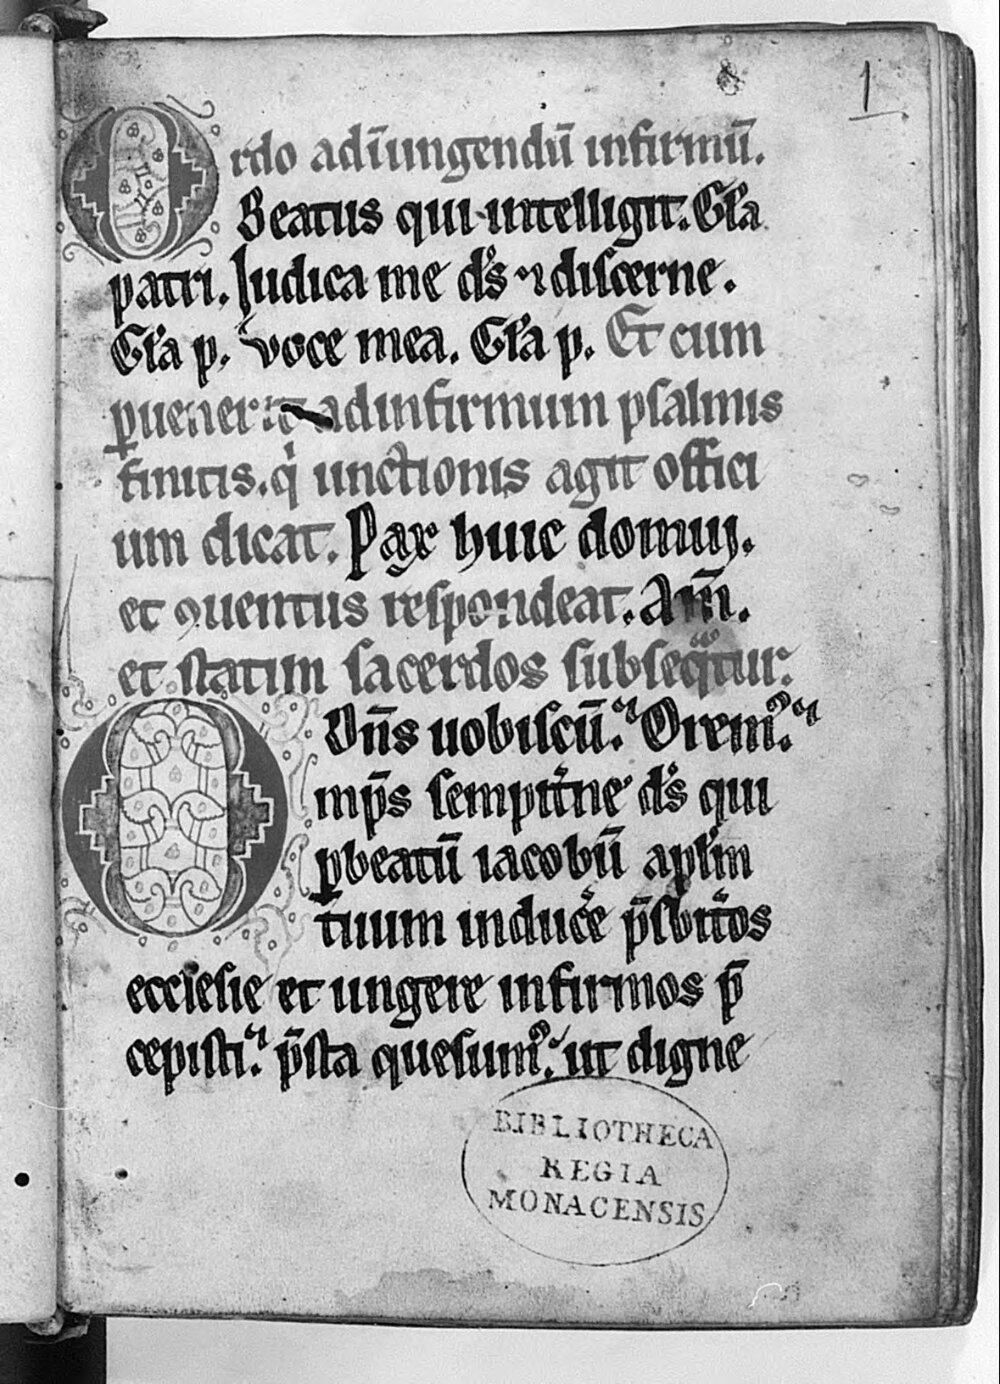 1
Ordo ad īungendū infirmū.
Beatus qui intelligit. Gl̄a
patri. Iudica me d̄s ⁊ discerne.
Gl̄a p. Voce mea. Gl̄a p. Et cum
ꝑuenerit ad infirmum psalmis
finitis. qͥ unctionis agit offici
um dicat. Pax huic domui.
et ꝯuentus respondeat. Am̄.
et statim sacerdos subsequatur.
Dn̄s uobiscū. Oremꝰ.
Omp̄s sempit̄ne d̄s qui
ꝑ beatū iacobū apl̄m
tuum induc̄e p̄sbit̄os
ecclesie et ungere infirmos p̄
cepisti. p̄sta quesumꝰ. ut digne
BIBLIOTHECA
REGIA
MONACENSIS